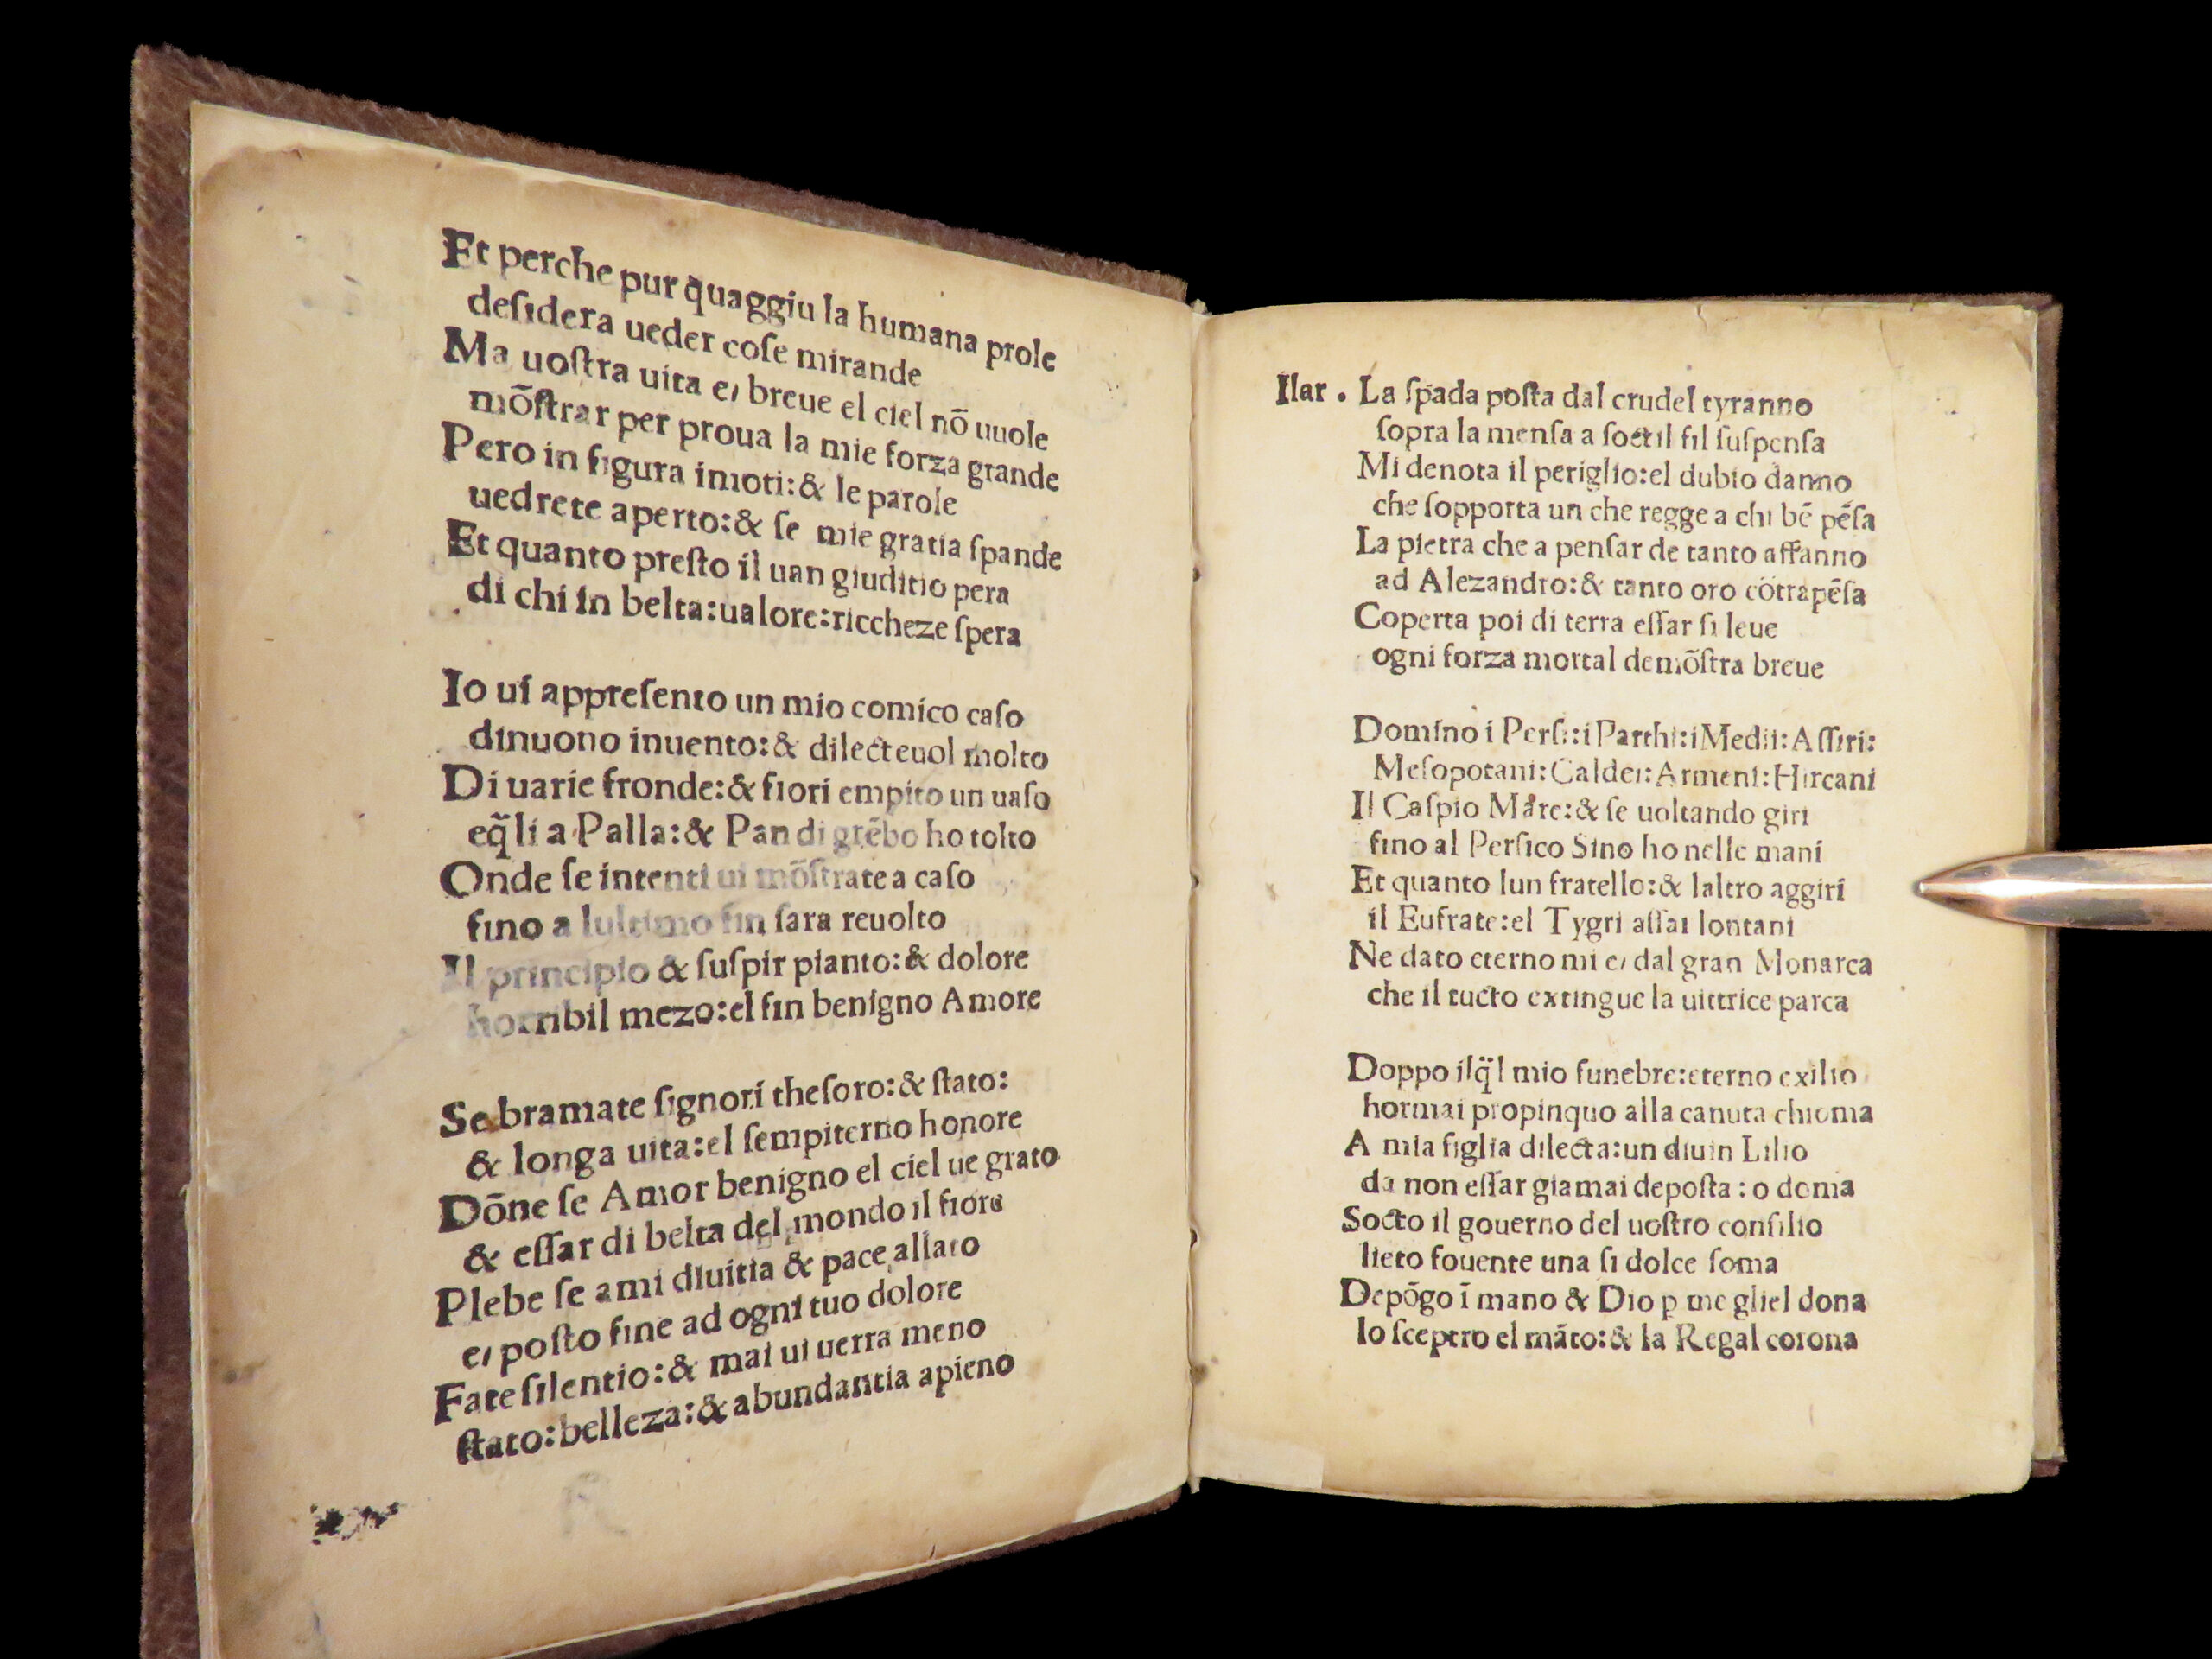 Et perche pur q̃uaggiu la humana prole
deſidera ueder coſe mirande
Ma uoſtra uita e, breue el ciel nõ uuole
mõſtrar per proua la mie forza grande
Pero in figura imoti:& le parole
uedrete aperto:& ſe mie gratia ſpande
Et quanto preſto il uan giuditio pera
di chi in belta:ualore:riccheze ſpera
Io ui appreſento un mio comico caſo
dinuouo inuento:& dilecteuol molto
Di uarie fronde:& fiori empito un uaſo
eq̃li a Palla:& Pan di grẽbo ho tolto
Onde ſe intenti ui mõſtrate a caſo
fino a lultimo fin ſara reuolto
Il principio & ſuſpir pianto:& dolore
horribil mezo:el fin benigno Amore
Se bramate ſignori theſoro:& ſtato:
& longa uita:el ſempiterno honore
Dõne ſe Amor benigno el ciel ue grato
& eſſar di belta del mondo il fiore
Plebe ſe ami diuitia & pace allato
e, poſto fine ad ogni tuo dolore
Fate ſilentio:& mai ui uerra meno
ſtato:belleza:& abundantia apieno
Ilar . La ſpada poſta dal crudel tyranno
ſopra la menſa a ſoctil fil ſuſpenſa
Mi denota il periglio:el dubio danno
che ſopporta un che regge a chi bẽ pẽſa
La pietra che a penſar de tanto affanno
ad Alezandro:& tanto oro cõtrapẽſa
Coperta poi di terra eſſar ſi leue
ogni forza mortal demõſtra breue
Domino i Perſi:i Parthi:i Medii:Aſſiri:
Meſopotani:Caldei:Armeni:Hircani
Il Caſpio Mare:& ſe uoltando giri
fino al Perſico Sino ho nelle mani
Et quanto lun fratello:& laltro aggiri
il Eufrate:el Tygri aſſai lontani
Ne dato eterno mi e, dal gran Monarca
che il tucto extingue la uittrice parca
Doppo ilq̃l mio funebre:eterno exilio
hormai propinquo alla canuta chioma
A mia figlia dilecta:un diuin Lilio
da non eſſar giamai depoſta : o doma
Socto il gouerno del uoſtro conſilio
lieto fouente una ſi dolce ſoma
Depõgo ĩ mano & Dio p me gliel dona
lo ſceptro el mãto:& la Regal corona